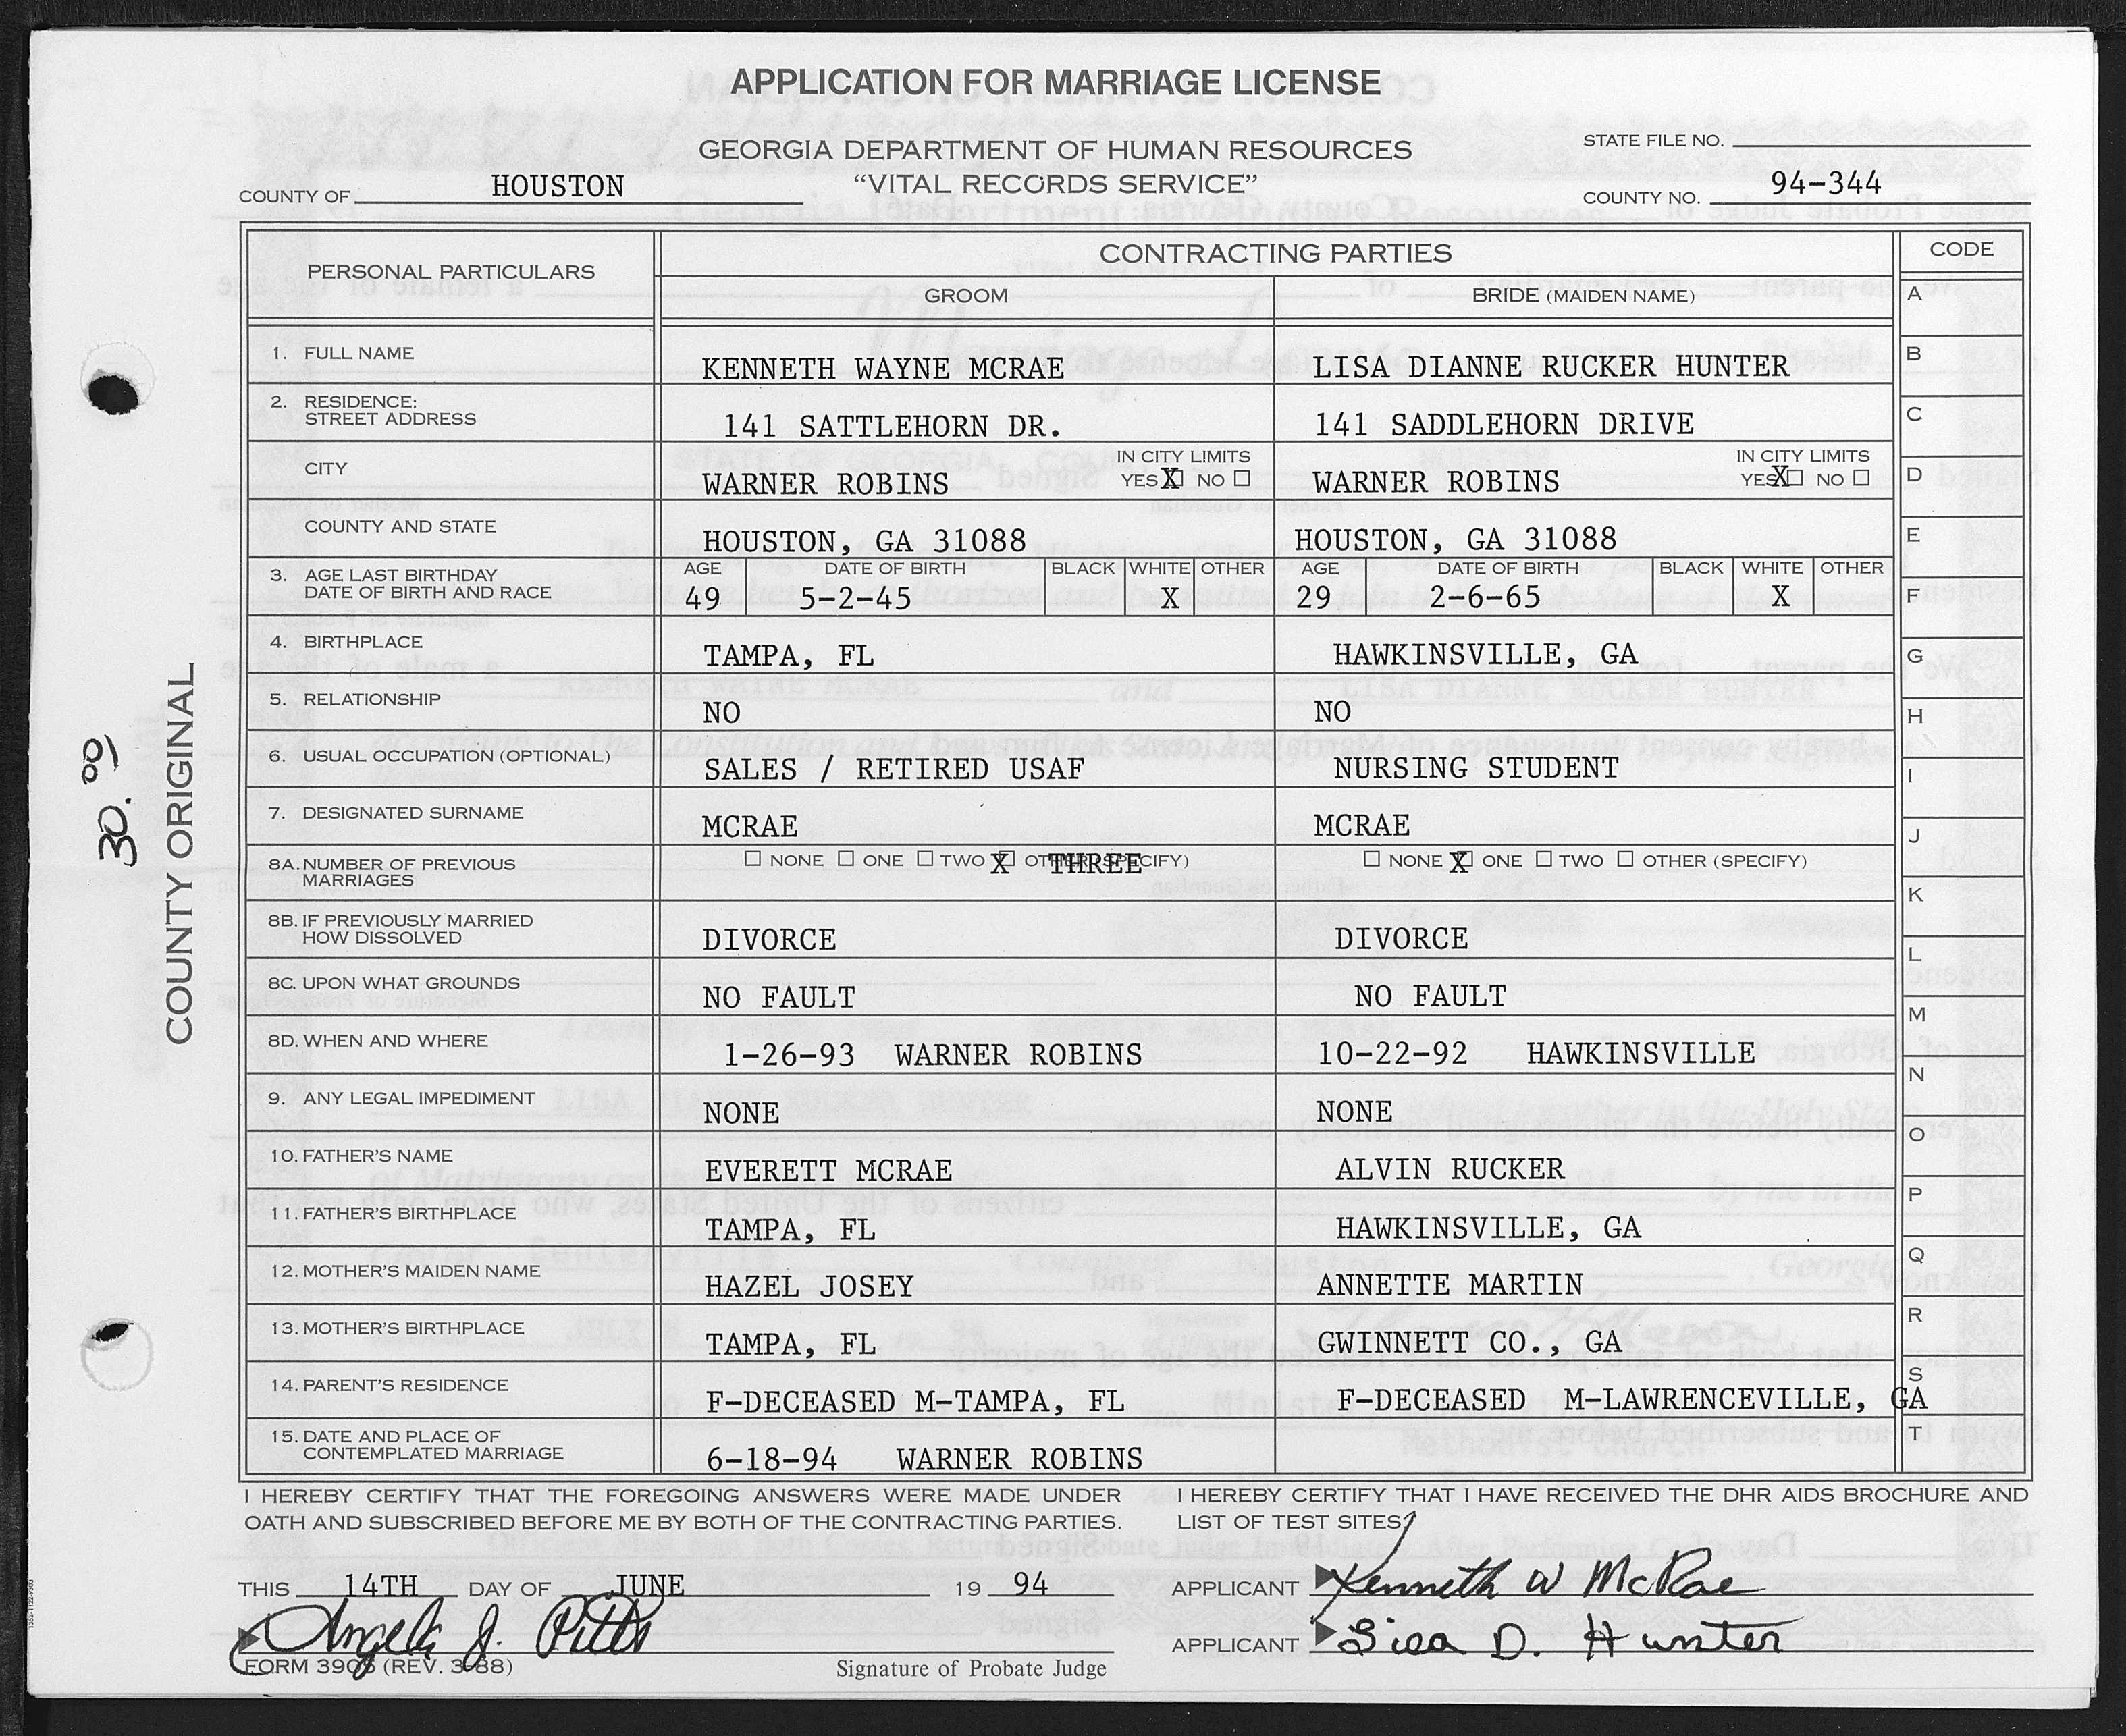 APPLICATION FOR MARRIAGE LICENSE
GEORGIA DEPARTMENT OF HUMAN RESOURCES
"VITAL RECORDS SERVICE"
STATE FILE NO.
COUNTY OF HOUSTON
COUNTY NO. 94-344
PERSONAL PARTICULARS
CONTRACTING PARTIES
CODE
GROOM
BRIDE (MAIDEN NAME)
A
1. FULL NAME KENNETH WAYNE MCRAE LISA DIANNE RUCKER HUNTER B
2. RESIDENCE:
STREET ADDRESS 141 SATTLEHORN DR. 141 SADDLEHORN DRIVE C
IN CITY LIMITS IN CITY LIMITS
CITY WARNER ROBINS YES X NO WARNER ROBINS YES X NO D
COUNTY AND STATE HOUSTON, GA 31088 HOUSTON, GA 31088 E
AGE DATE OF BIRTH BLACK WHITE OTHER AGE DATE OF BIRTH BLACK WHITE OTHER
3. AGE LAST BIRTHDAY
DATE OF BIRTH AND RACE 49 5-2-45 X 29 2-6-65 X F
4. BIRTHPLACE TAMPA, FL HAWKINSVILLE, GA G
5. RELATIONSHIP NO NO H
6. USUAL OCCUPATION (OPTIONAL) SALES / RETIRED USAF NURSING STUDENT I
7. DESIGNATED SURNAME MCRAE MCRAE J
8A. NUMBER OF PREVIOUS
MARRIAGES NONE ONE TWO X OTHER (SPECIFY) THREE NONE X ONE TWO OTHER (SPECIFY)
K
8B. IF PREVIOUSLY MARRIED
HOW DISSOLVED DIVORCE DIVORCE L
8C. UPON WHAT GROUNDS NO FAULT NO FAULT M
8D. WHEN AND WHERE 1-26-93 WARNER ROBINS 10-22-92 HAWKINSVILLE N
9. ANY LEGAL IMPEDIMENT NONE NONE O
10. FATHER'S NAME EVERETT MCRAE ALVIN RUCKER P
11. FATHER'S BIRTHPLACE TAMPA, FL HAWKINSVILLE, GA Q
12. MOTHER'S MAIDEN NAME HAZEL JOSEY ANNETTE MARTIN R
13. MOTHER'S BIRTHPLACE TAMPA, FL GWINNETT CO., GA S
14. PARENT'S RESIDENCE F-DECEASED M-TAMPA, FL F-DECEASED M-LAWRENCEVILLE, GA
15. DATE AND PLACE OF
CONTEMPLATED MARRIAGE 6-18-94 WARNER ROBINS T
I HEREBY CERTIFY THAT THE FOREGOING ANSWERS WERE MADE UNDER
OATH AND SUBSCRIBED BEFORE ME BY BOTH OF THE CONTRACTING PARTIES.
I HEREBY CERTIFY THAT I HAVE RECEIVED THE DHR AIDS BROCHURE AND
LIST OF TEST SITES.
THIS 14TH DAY OF JUNE 19 94
APPLICANT Kenneth W McRae
Angela J. Pitts
APPLICANT Lisa D. Hunter
FORM 3908 (REV. 3-88)
Signature of Probate Judge
COUNTY ORIGINAL
30.00